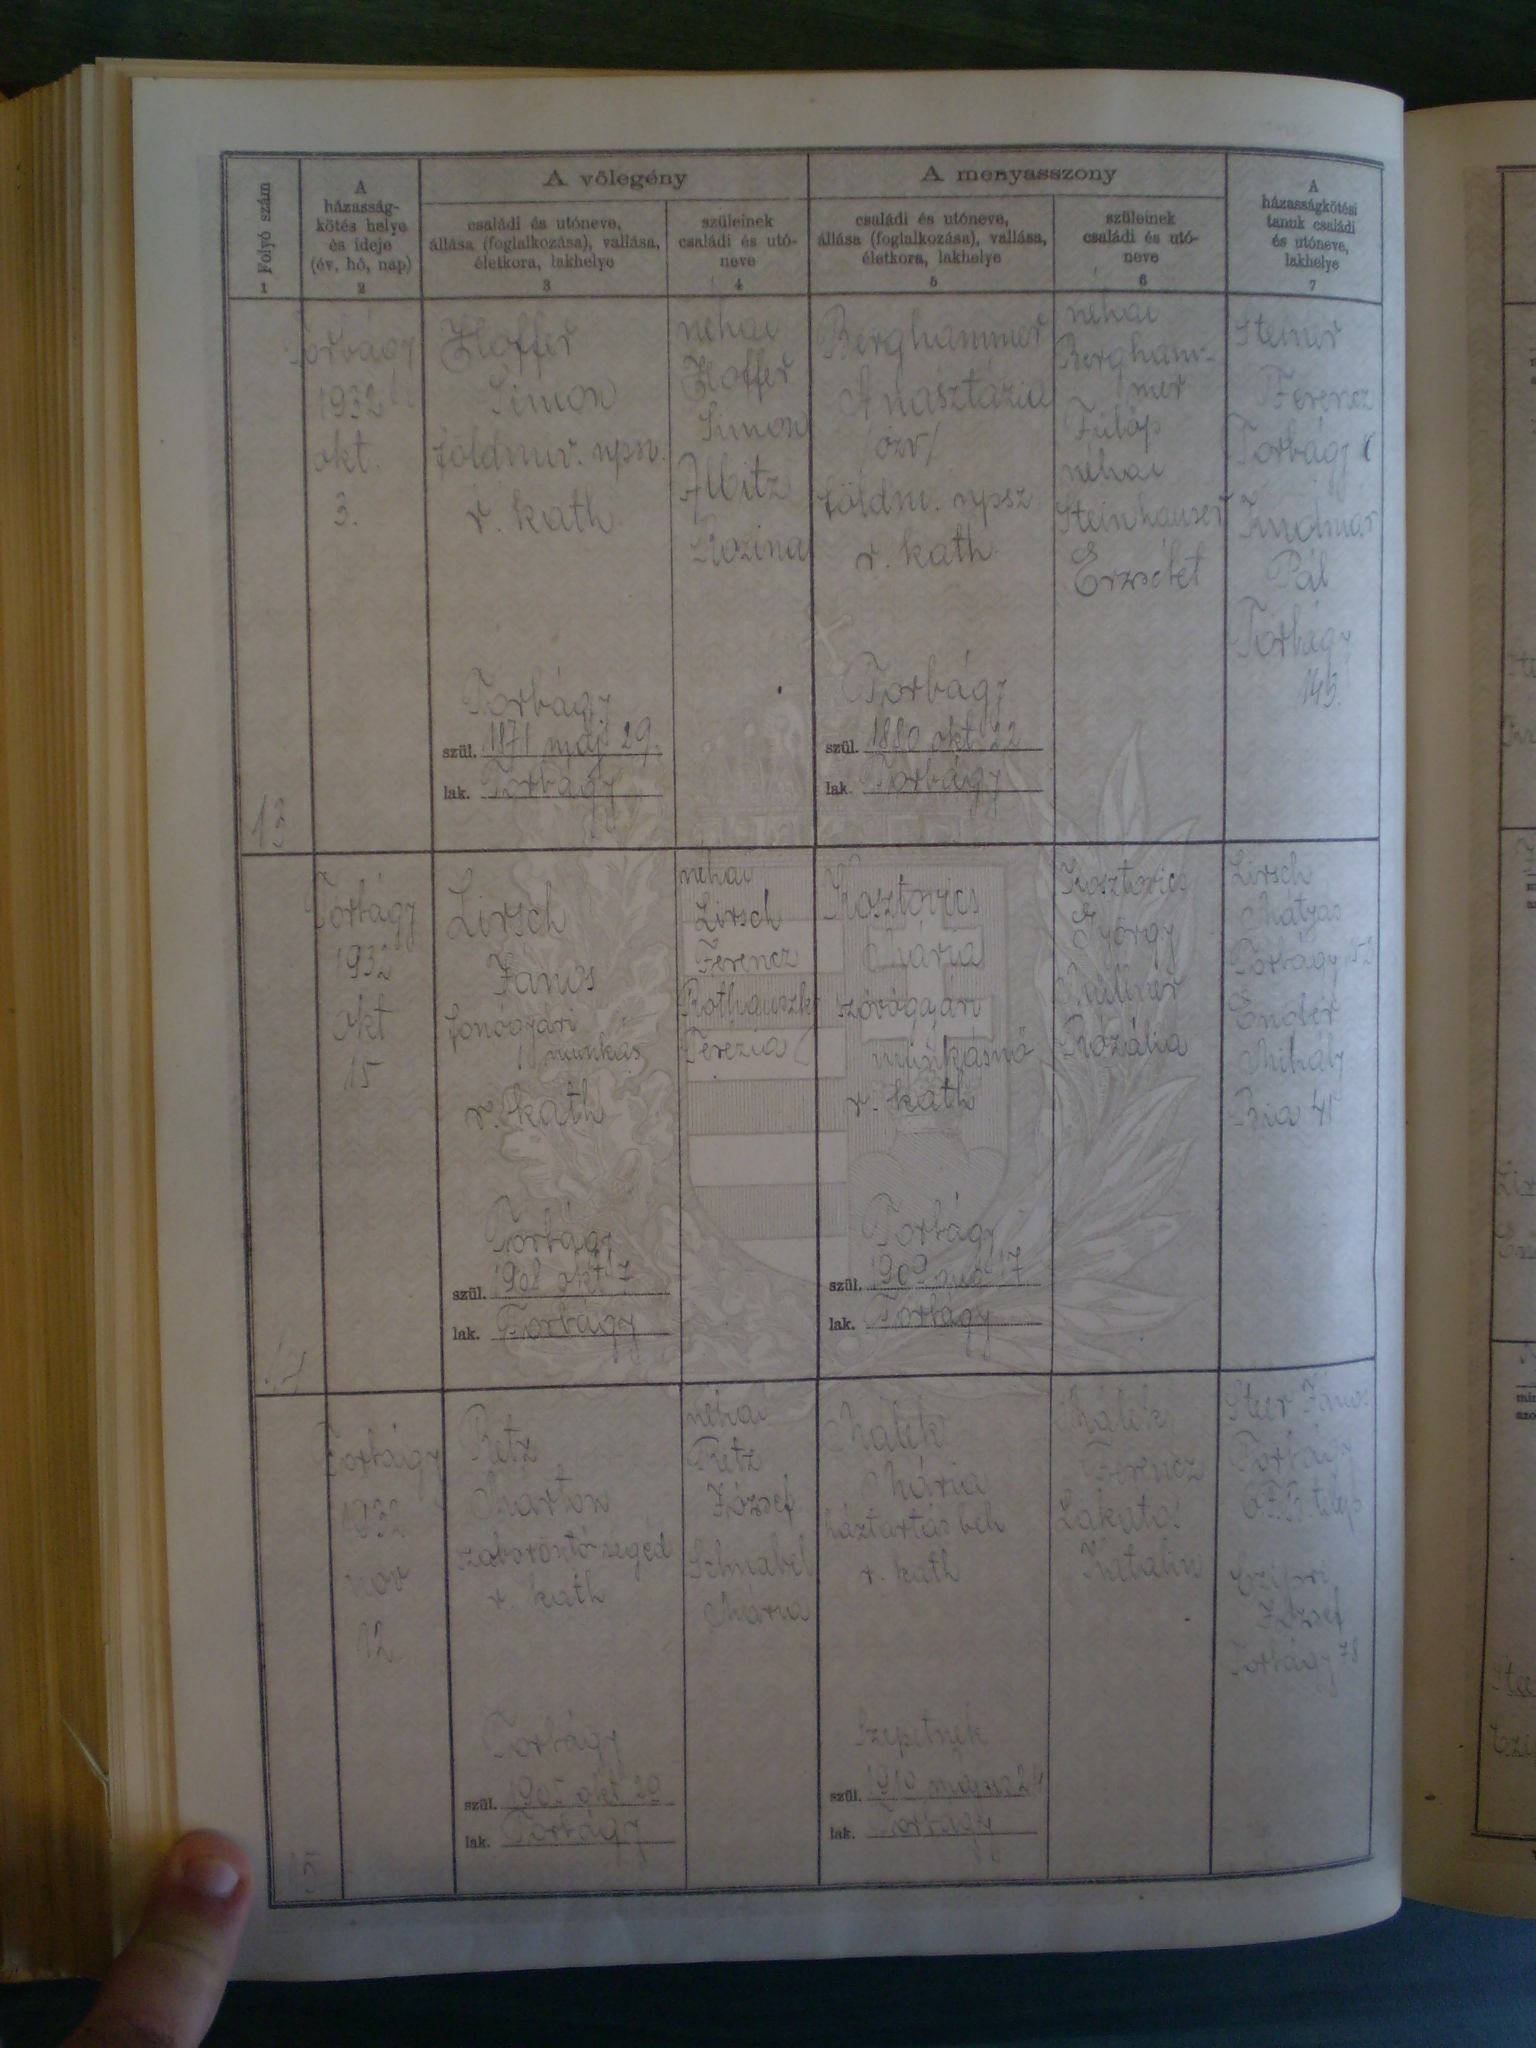 Folyó szám
1
A
házasság-
kötés helye
és ideje
(év, hó, nap)
2
A vőlegény
családi és utóneve,
állása (foglalkozása), vallása,
életkora, lakhelye
3
szüleinek
családi és utó-
neve
4
A menyasszony
családi és utóneve,
állása (foglalkozása), vallása,
életkora, lakhelye
5
szüleinek
családi és utó-
neve
6
A
házasságkötési
tanuk családi
és utóneve,
lakhelye
7
13
Torbágy
1932
okt.
3.
Hoffer
Simon
földmiv. npsz.
r. kath
Torbágy
szül. 1871 máj 29.
lak. Torbágy
néhai
Hoffer
Simon
Albitz
Rozina
Berghammer
Anasztázia
/özv/
földm. npsz
r. kath.
Torbágy
szül. 1880 okt. 22
lak. Torbágy
néhai
Bergham-
mer
Fülöp
néhai
Steinhauser
Erzsébet
Steiner
Ferencz
Torbágy
Pál
Torbágy
145.
14
Torbágy
1932
okt
15
Lirsch
János
fonógyári
munkás
r. kath
Torbágy
szül. 1908 okt 7
lak. Torbágy
néhai
Lirsch
Ferencz
Terézia
Kosztovics
Mária
szövőgyári
munkásnő
r. kath
Torbágy
szül. 1909 17
lak. Torbágy
Kosztovics
György
Rózália
Lirsch
Mátyás
Torbágy 152
Engler
Mihály
Bia 41
15
Torbágy
1932
nov
12.
Retz
Márton
segéd
r. kath
Torbágy
szül. 1905 okt 20
lak. Torbágy
néhai
Retz
József
Schnabel
Mária
Málek
Mária
háztartásbeli
r. kath
Szepetnek
szül. 1910 május 24
lak. Torbágy
Málek
Ferencz
Lakatos
Katalin
Steer János
Torbágy
telep
Czipri
József
Torbágy 78